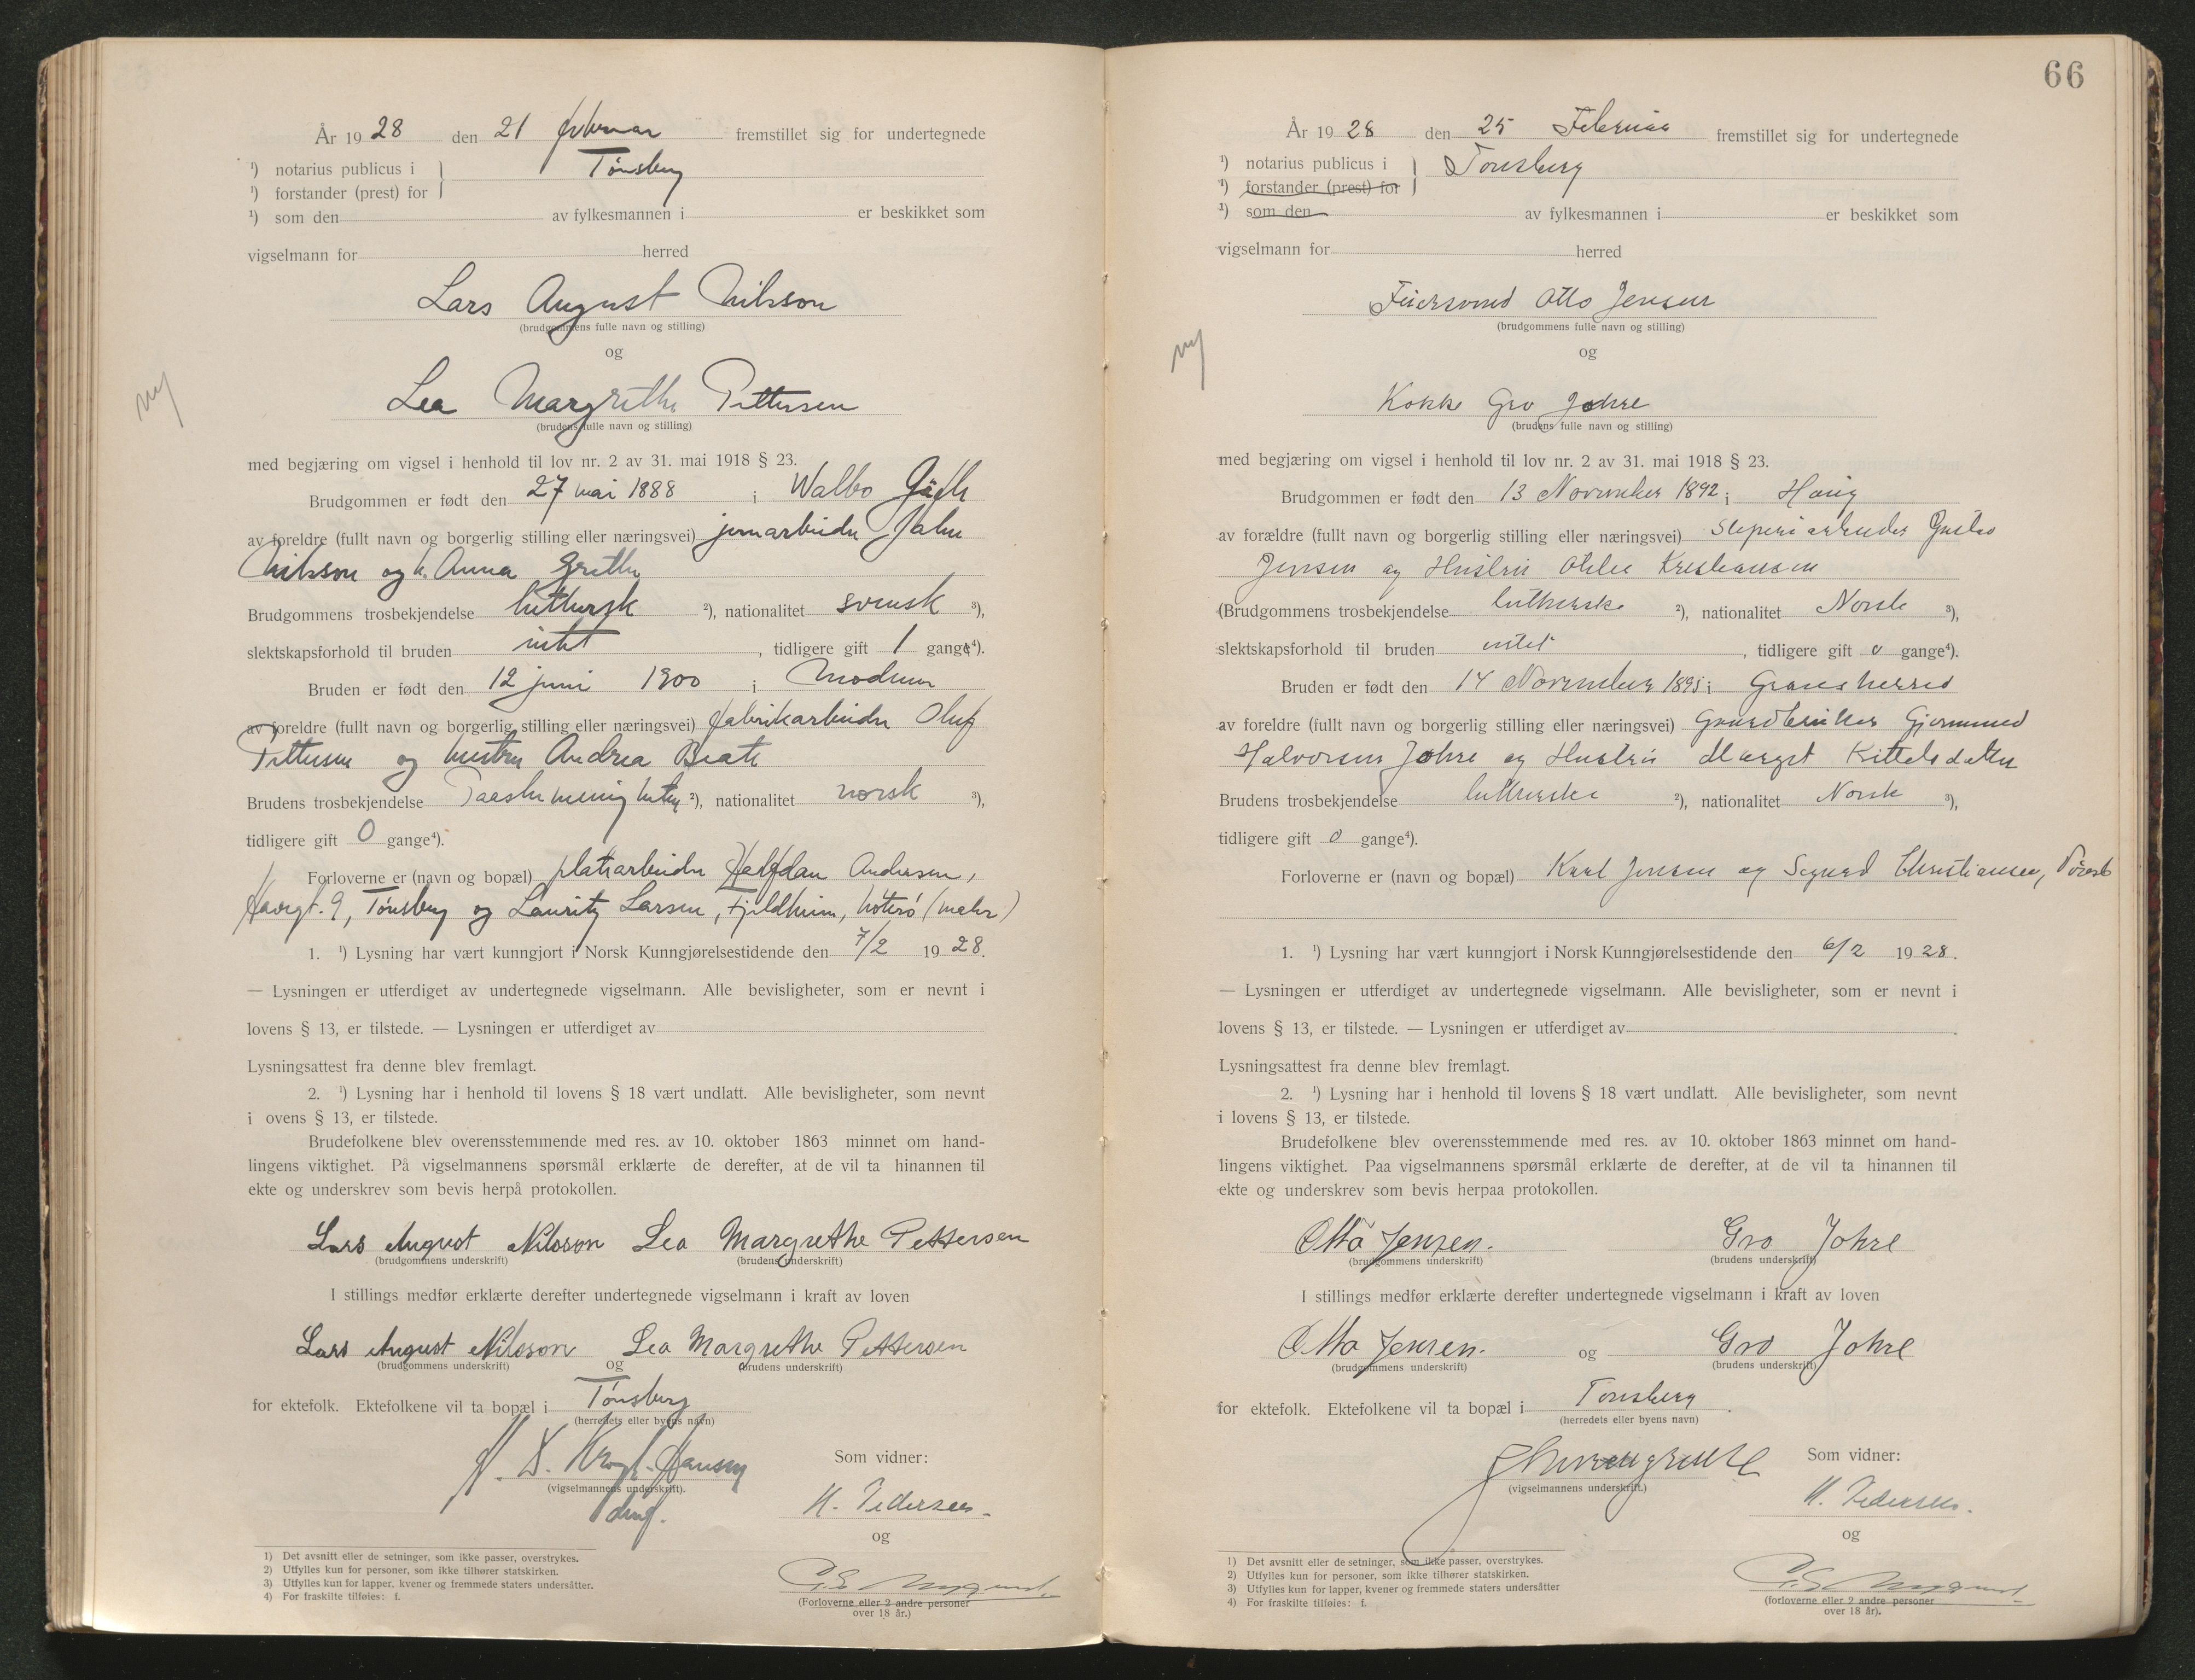 År 19 28 den 21 februar fremstillet sig for undertegnede
¹) notarius publicus i } Tønsberg
¹) forstander (prest) for
¹) som den av fylkesmannen i er beskikket som
vigselmann for herred
Lars August Nilsson
(brudgommens fulle navn og stilling)
og
Lea Margrethe Pettersen
(brudens fulle navn og stilling)
med begjæring om vigsel i henhold til lov nr. 2 av 31. mai 1918 § 23.
Brudgommen er født den 27 mai 1888 i Walbo
av foreldre (fullt navn og borgerlig stilling eller næringsvei) jernarbeider
Nilsson og h. Anna Grethe
Brudgommens trosbekjendelse luthersk ²), nationalitet svensk ³),
slektskapsforhold til bruden intet , tidligere gift 1 gange⁴).
Bruden er født den 12 juni 1900 i Modum
av foreldre (fullt navn og borgerlig stilling eller næringsvei) fabrikarbeider Oluf
Pettersen og hustru Andrea Beate
Brudens trosbekjendelse ²), nationalitet norsk ³),
tidligere gift 0 gange⁴).
Forloverne er (navn og bopæl) platearbeider Halfdan Andersen,
Havegt. 9, Tønsberg og Lauritz Larsen, Fjeldheim,
1. ¹) Lysning har vært kunngjort i Norsk Kunngjørelsestidende den 7/2 19 28.
— Lysningen er utferdiget av undertegnede vigselmann. Alle bevisligheter, som er nevnt i
lovens § 13, er tilstede. — Lysningen er utferdiget av
Lysningsattest fra denne blev fremlagt.
2. ¹) Lysning har i henhold til lovens § 18 vært undlatt. Alle bevisligheter, som nevnt
i ovens § 13, er tilstede.
Brudefolkene blev overensstemmende med res. av 10. oktober 1863 minnet om hand-
lingens viktighet. På vigselmannens spørsmål erklærte de derefter, at de vil ta hinannen til
ekte og underskrev som bevis herpå protokollen.
Lars August Nilsson Lea Margrethe Pettersen
(brudgommens underskrift) (brudens underskrift)
I stillings medfør erklærte derefter undertegnede vigselmann i kraft av loven
Lars August Nilsson Lea Margrethe Pettersen
(brudgommens underskrift) og (brudens underskrift)
for ektefolk. Ektefolkene vil ta bopæl i Tønsberg
(herredets eller byens navn)
Som vidner:
(vigselmannens underskrift).
H. Pedersen.
og
(Forloverne eller 2 andre personer
over 18 år.)
1) Det avsnitt eller de setninger, som ikke passer, overstrykes.
2) Utfylles kun for personer, som ikke tilhører statskirken.
3) Utfylles kun for lapper, kvener og fremmede staters undersåtter.
4) For fraskilte tilføies: f.
66
År 19 28 den 25 Februar fremstillet sig for undertegnede
¹) notarius publicus i } Tønsberg
¹) forstander (prest) for
¹) som den av fylkesmannen i er beskikket som
vigselmann for herred
Feiersvend Otto Jensen
(brudgommens fulle navn og stilling)
og
Kokke Gro Johre
(brudens fulle navn og stilling)
med begjæring om vigsel i henhold til lov nr. 2 av 31. mai 1918 § 23.
Brudgommen er født den 13 November 1892 i Haug
av forældre (fullt navn og borgerlig stilling eller næringsvei) Sliperiarbeider Gustav
Jensen og Hustru
Brudgommens trosbekjendelse lutherske ²), nationalitet Norsk ³),
slektskapsforhold til bruden intet , tidligere gift 0 gange⁴).
Bruden er født den 14 November 1895 i Gransherred
av foreldre (fullt navn og borgerlig stilling eller næringsvei) Gaardbruker Gjermund
Halvorsen Johre og Hustru Marget Kittelsdatter
Brudens trosbekjendelse lutherske ²), nationalitet Norsk ³),
tidligere gift 0 gange⁴).
Forloverne er (navn og bopæl) Karl Jensen og Sigurd Christiansen,
1. ¹) Lysning har vært kunngjort i Norsk Kunngjørelsestidende den 6/2 19 28.
— Lysningen er utferdiget av undertegnede vigselmann. Alle bevisligheter, som er nevnt i
lovens § 13, er tilstede. — Lysningen er utferdiget av
Lysningsattest fra denne blev fremlagt.
2. ¹) Lysning har i henhold til lovens § 18 vært undlatt. Alle bevisligheter, som nevnt
i lovens § 13, er tilstede.
Brudefolkene blev overensstemmende med res. av 10. oktober 1863 minnet om hand-
lingens viktighet. Paa vigselmannens spørsmål erklærte de derefter, at de vil ta hinannen til
ekte og underskrev som bevis herpaa protokollen.
Otto Jensen. Gro Johre
(brudgommens underskrift) (brudens underskrift)
I stillings medfør erklærte derefter undertegnede vigselmann i kraft av loven
Otto Jensen. og Gro Johre
(brudgommens underskrift) (brudens underskrift)
for ektefolk. Ektefolkene vil ta bopæl i Tønsberg.
(herredets eller byens navn)
Som vidner:
(vigselmannens underskrift.)
H. Pedersen.
og
(forloverne eller 2 andre personer
over 18 år).
1) Det avsnitt eller de setninger, som ikke passer, overstrykes.
2) Utfylles kun for personer, som ikke tilhører statskirken.
3) Utfylles kun for lapper, kvener og fremmede staters undersåtter
4) For fraskilte tilføies: f.